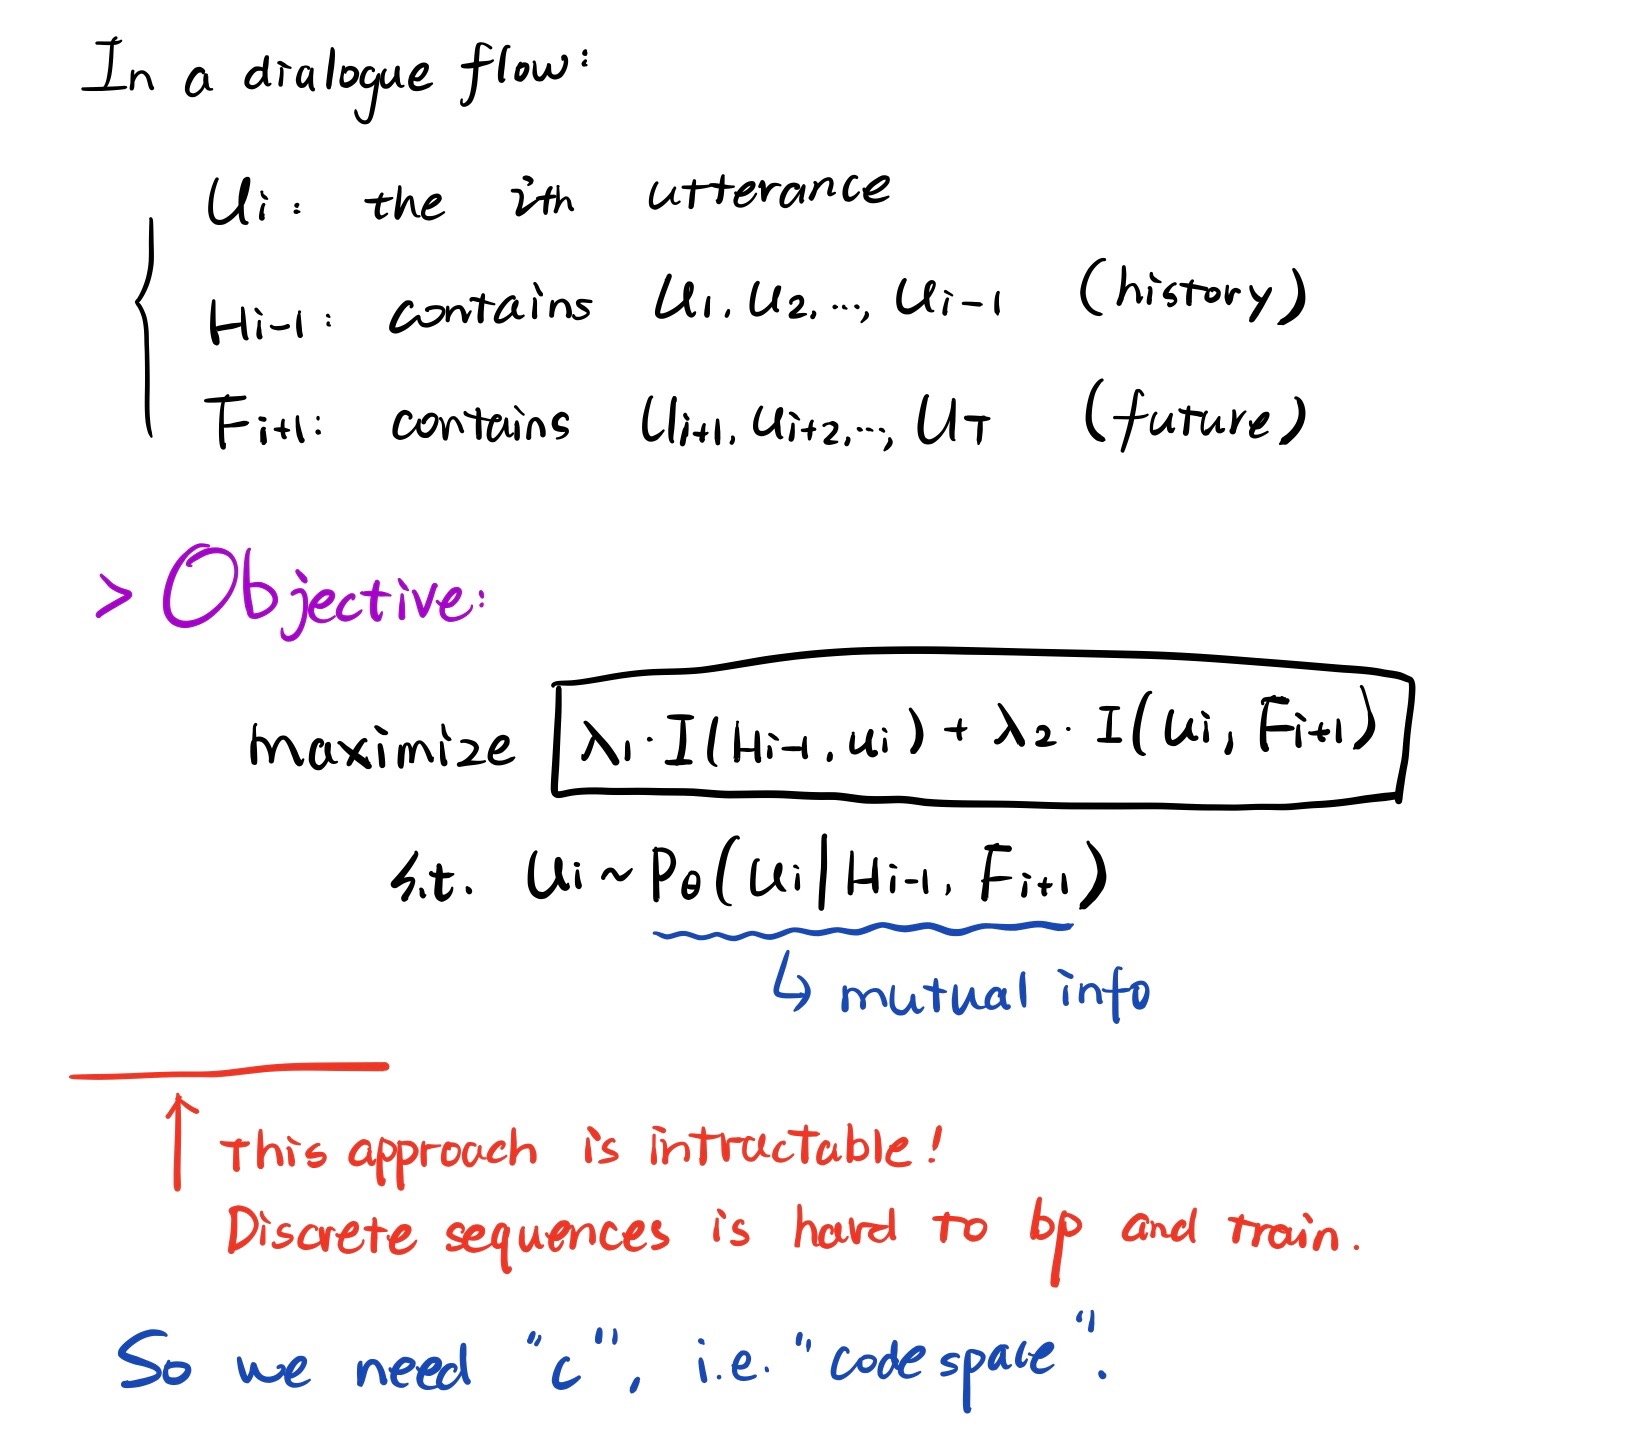 In a dialogue flow:
Ui: the ith utterance
Hi-1: contains U1, U2, ..., Ui-1 (history)
Fi+1: contains Ui+1, Ui+2, ..., UT (future)
> Objective:
maximize λ1·I(Hi-1, Ui) + λ2·I(Ui, Fi+1)
s.t. Ui ~ Pθ(Ui | Hi-1, Fi+1)
↳ mutual info
↑ This approach is intractable!
Discrete sequences is hard to bp and train.
So we need "c", i.e. "code space".